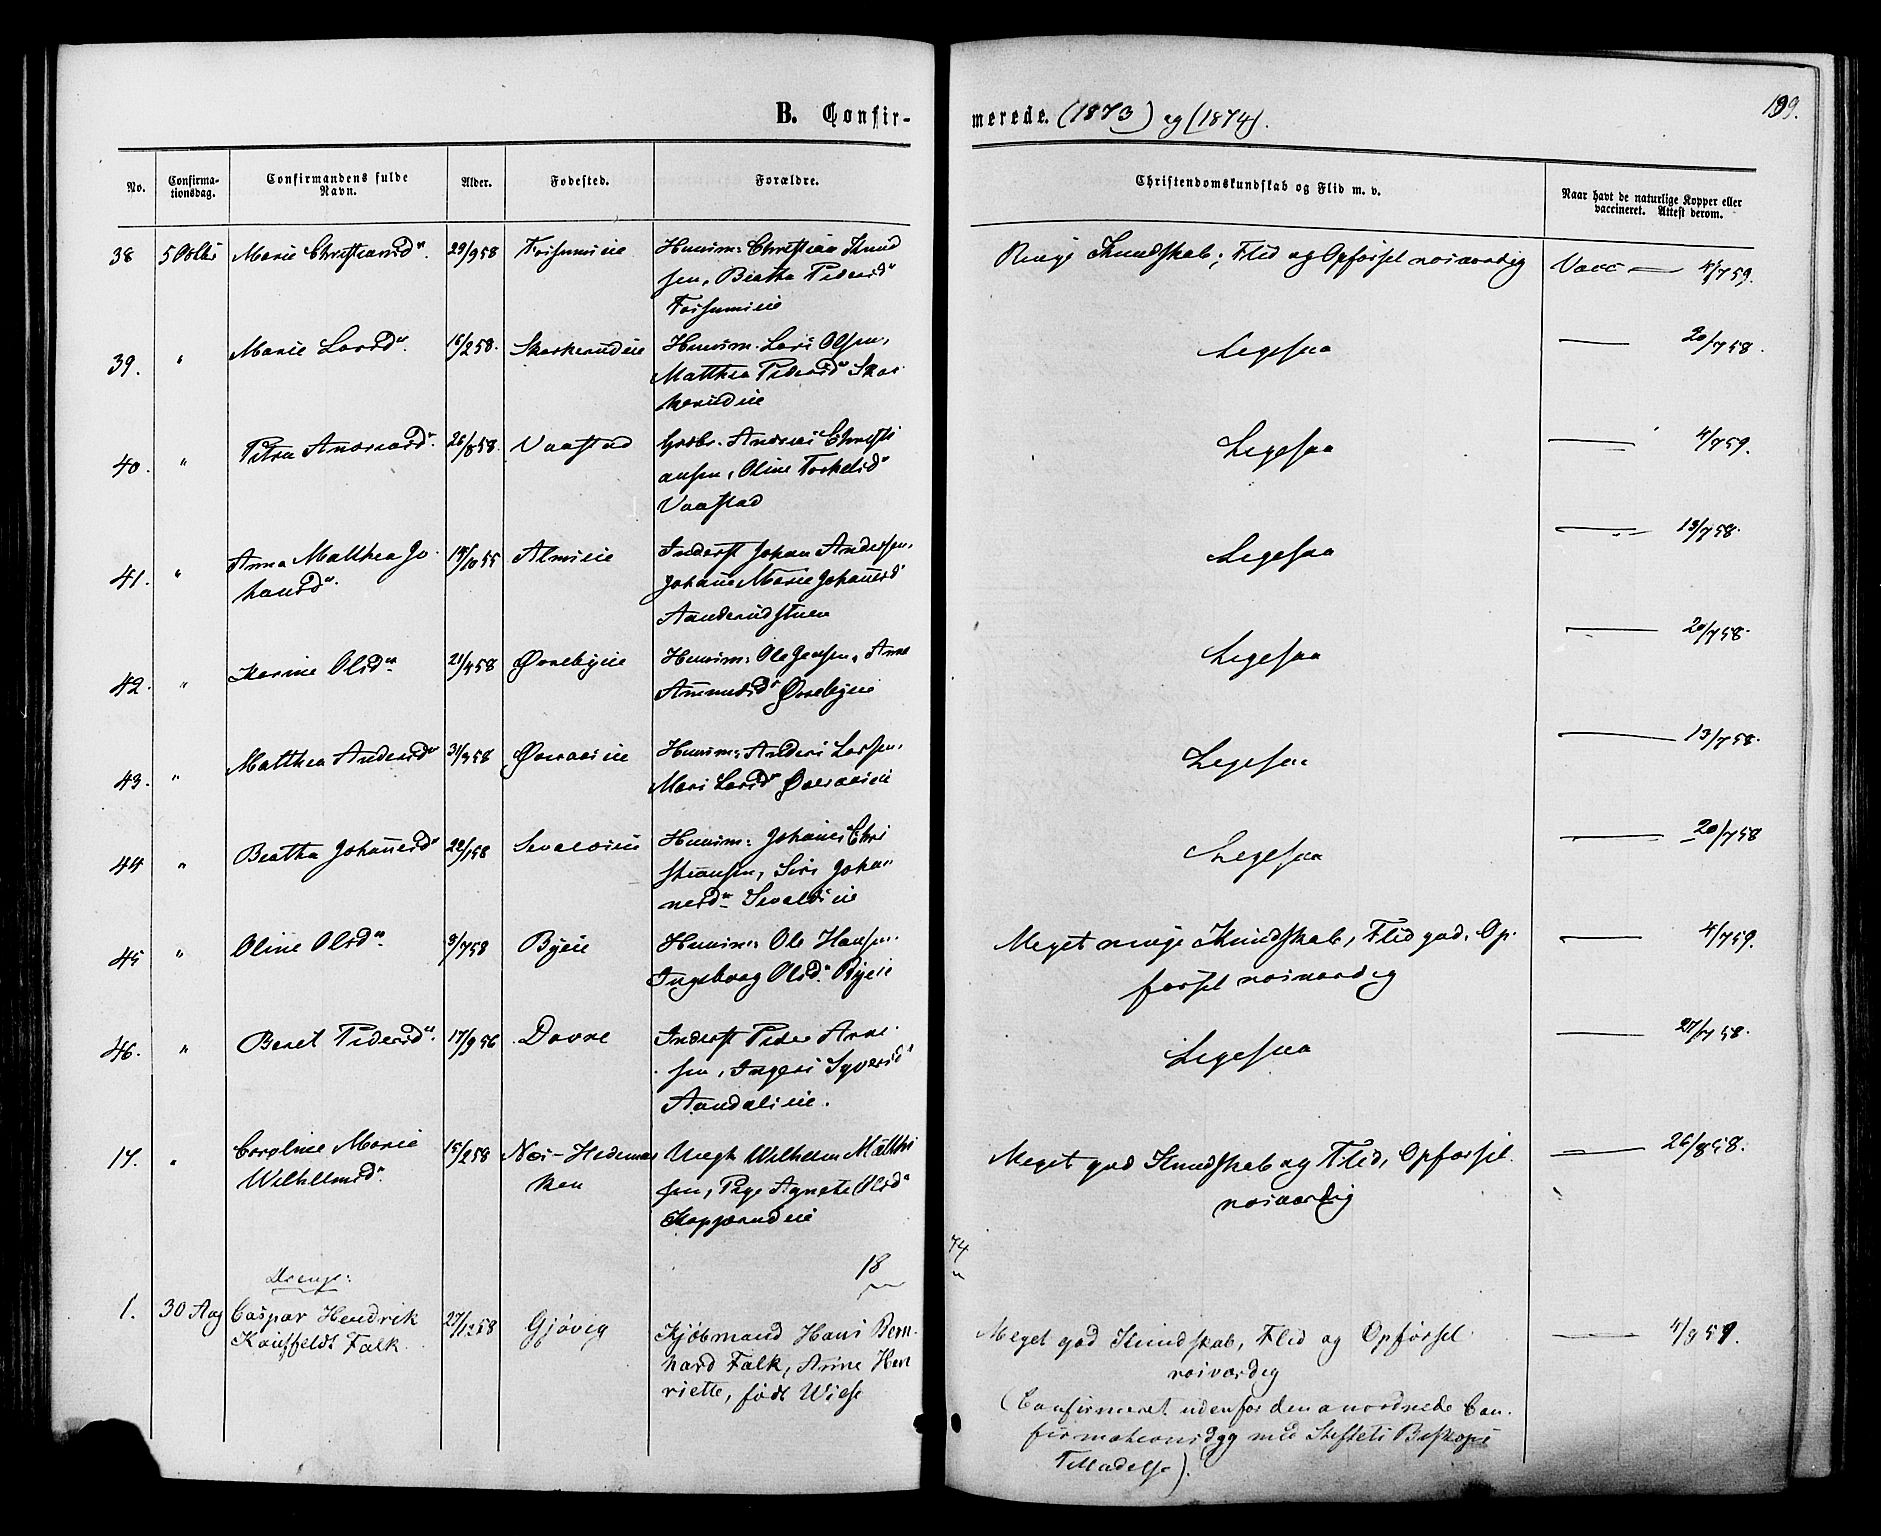 B. Confir-
merede. (1873) og (1874).
199.
No.
Confirma-
tionsdag.
Confirmandens fulde
Navn.
Alder.
Fødested.
Forældre.
Christendomskundskab og Flid m. v.
Naar havt de naturlige Kopper eller
vaccineret. Attest derom.
38 5 Octbr Marie Christiansd" 29/9 58 Huusm: Christian Knud
sen, Beatha Pedersd"
Ringe Kundskab; Flid og Opførsel rosværdig Vacc — 4/7 59.
39. " Marie Larsd" 16/2 58. Skarkerudeie Huusm. Lars Olsen,
Matthea Pedersd" Skar
kerudeie
Ligesaa — 20/7 58.
40. " Petra Andreasd" 26/8 58. Vaastad Grbr. Andreas Christi
ansen, Oline Torkelsd"
Vaastad
Ligesaa — 4/7 59.
41. " Anna Matthea Jo
hansd" 19/10 55 Almseie Inderst Johan Andersen,
Johane Marie Johannesd"
Aanderudstuen
Ligesaa — 13/7 58.
42. " Karine Olsd" 21/4 58 Øvrebyeie Huusm: Ole Jensen, Anne
Amundsd" Øvrebyeie
Ligesaa — 20/7 58.
43. " Matthea Andersd" 31/3 58 Huusm: Anders Larsen,
Mari Larsd"
Ligesaa — 13/7 58.
44 " Beatha Johannesd" 22/1 58 Sevaldseie Huusm: Johannes Chri
stiansen, Siri Johan
nesd" Sevaldseie
Ligesaa — 20/7 58
45 " Oline Olsd" 8/7 58 Byeie Huusm: Ole Hansen,
Ingeborg Olsd" Byeie
Meget ringe Kundskab, Flid god, Op-
førsel rosværdig — 4/7 59.
46. " Beret Pedersd" 17/9 56 Dovre Inderst Peder Arne
sen, Ingeri Syversd"
Aandalseie.
Ligesaa — 27/7 58.
17. " Caroline Marie
Wilhelmsd" 15/2 58 Nor-Hedemar
ken Ungk Wilhelm Matthi
sen, Pige Agnete Olsd"
Kopperudeie
Meget god Kundskab og Flid, Opførsel
rosværdig — 26/8 58.
18
74
Drenge:
1. 30 Aug Caspar Hendrik
Kausfeldt Falk 27/12 58 Gjøvig Kjøbmand Hans Bern-
hard Falk, Arine Hen
riette, født Wiese
Meget god Kundskab, Flid og Opførsel
rosværdig
(Confirmeret udenfor den anordnede Con-
firmationsdag med Stiftets Biskops
Tilladelse). — 4/8 59.